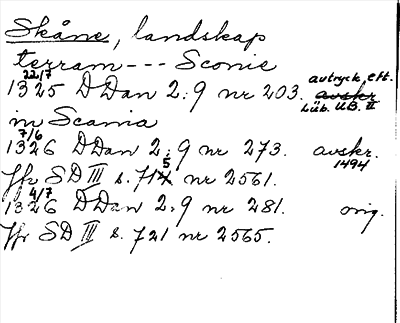 Skåne, landskap
terram --- Sconie
22/7 avtryck eft.
1325 DDan 2:9 nr 203. avskr
Lüb. UB. II
in Scania
7/6
1326 DDan 2:9 nr 273. avskr.
1494
Jfr SD III s. 715 nr 2561.
4/7
1326 DDan 2:9 nr 281. orig.
Jfr SD III s. 721 nr 2565.